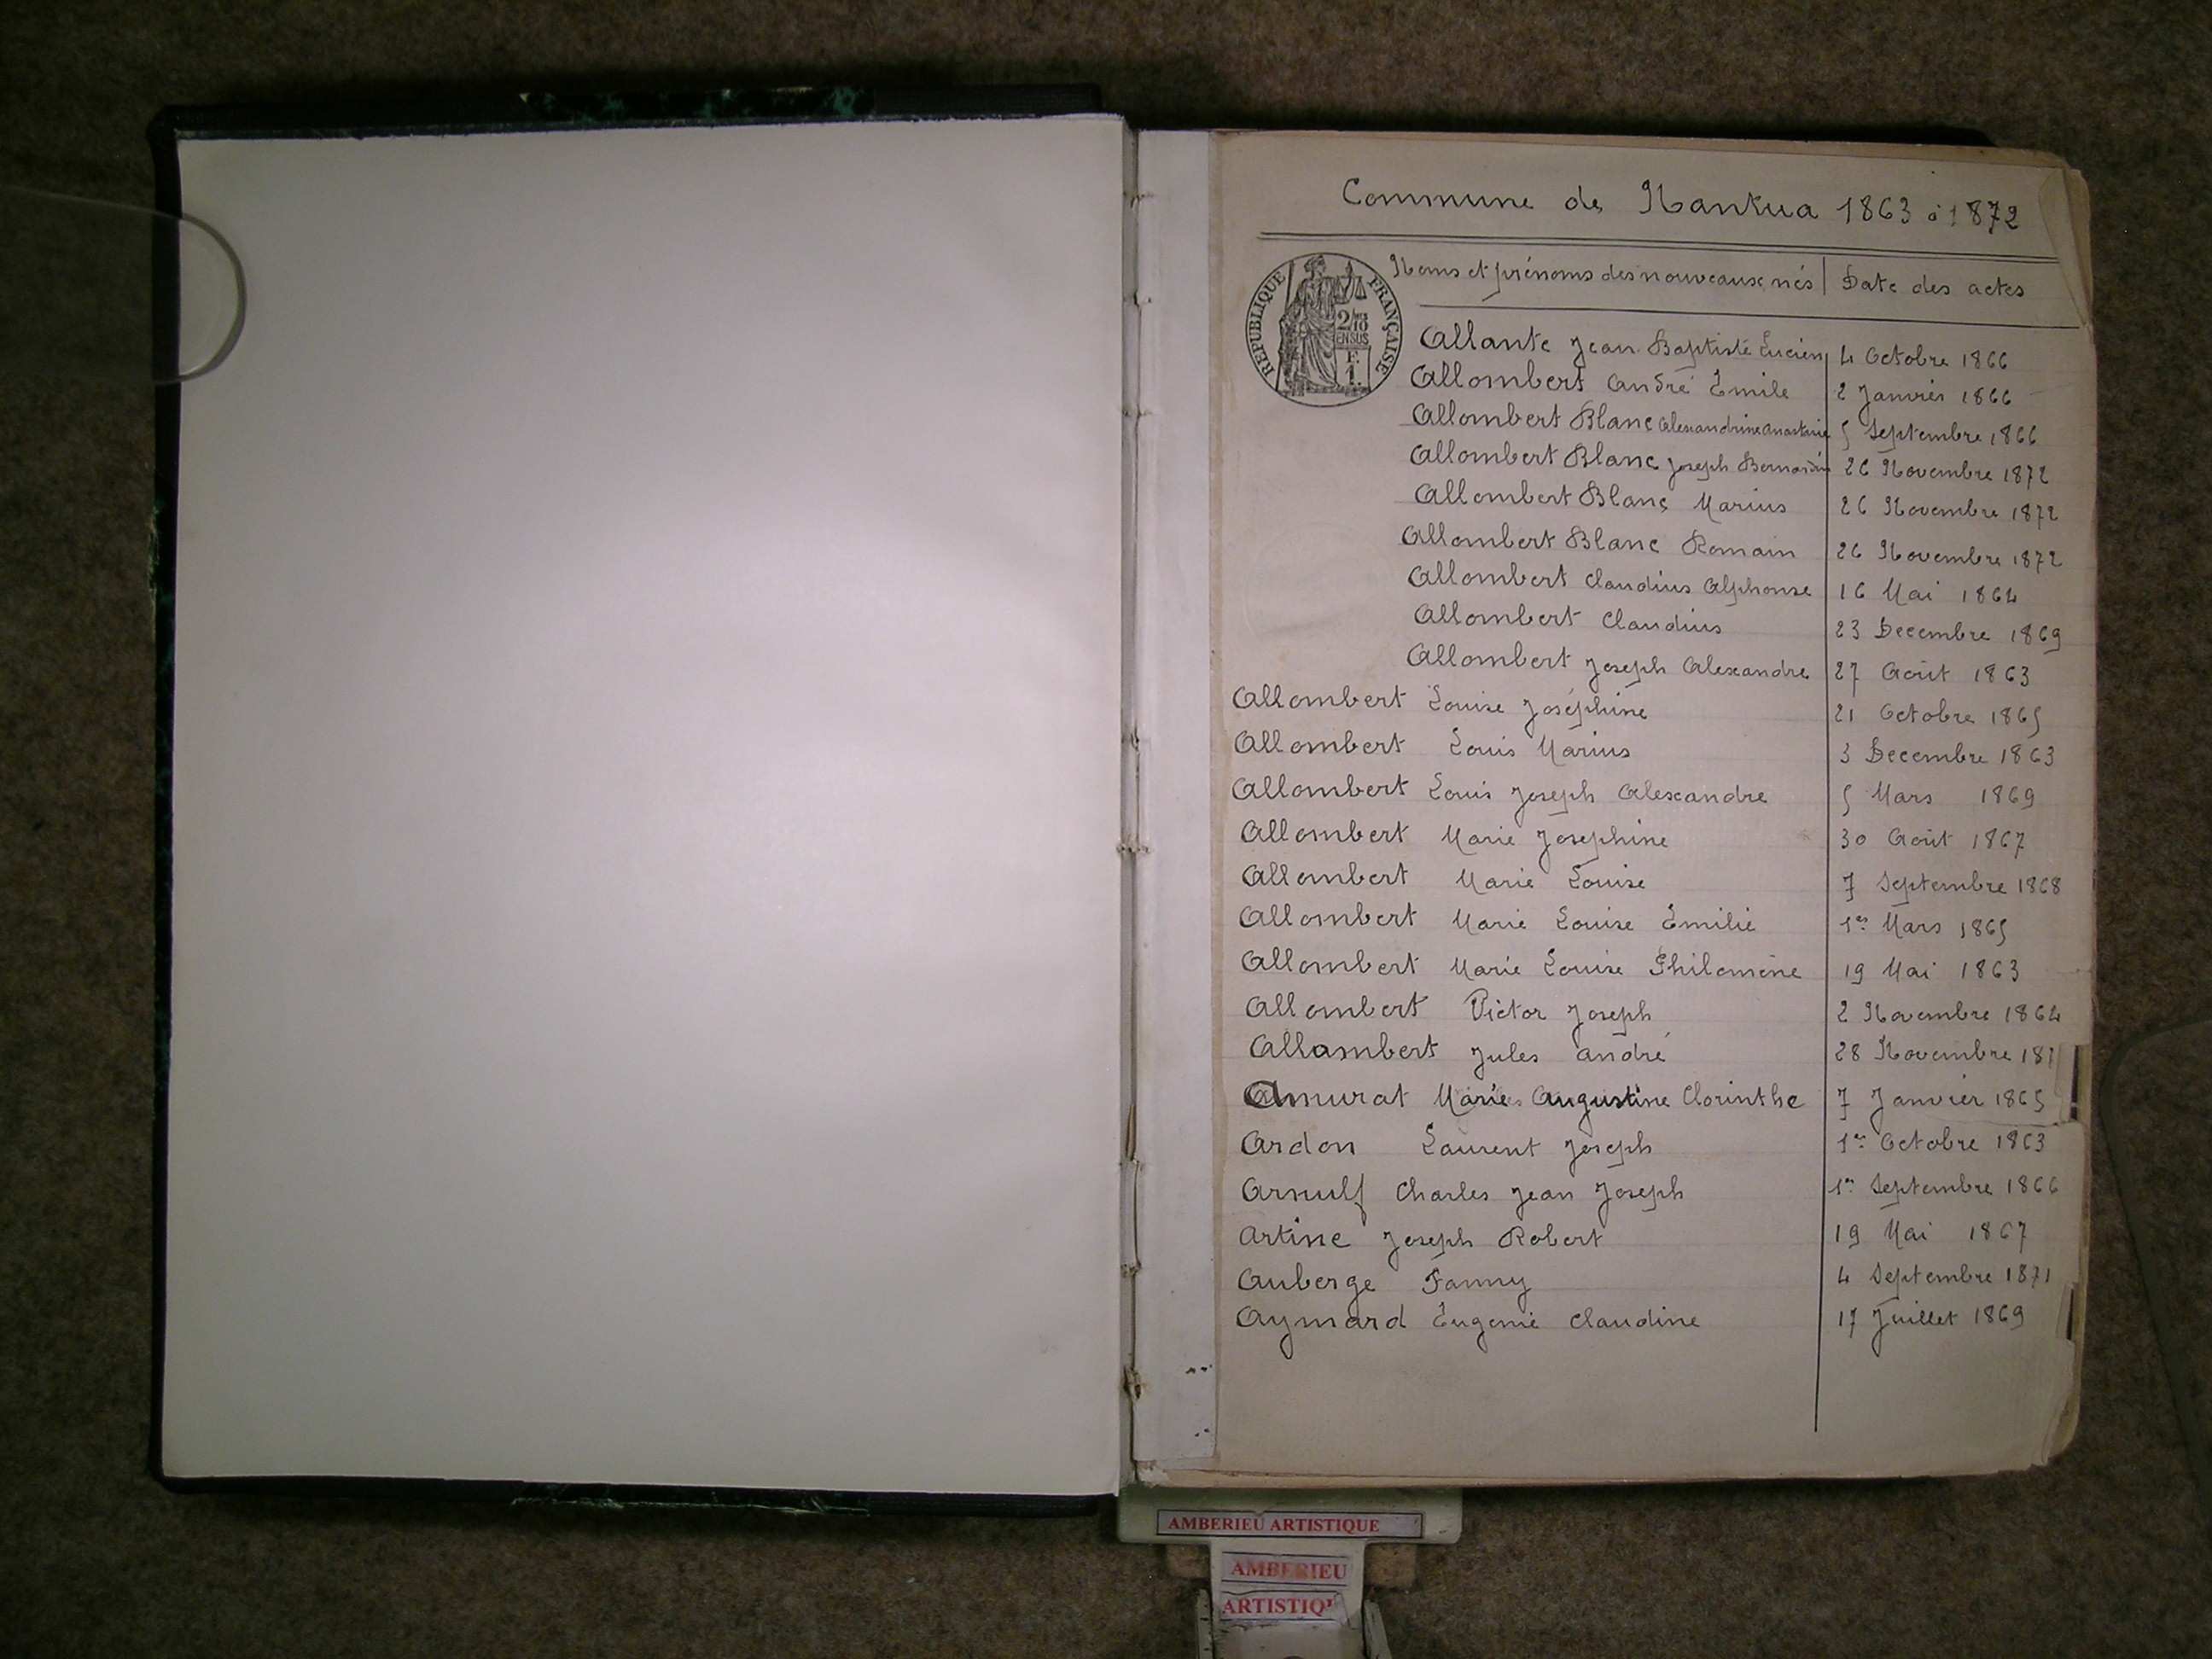 Commune de Nantua 1863 à 1872
Noms et prénoms des nouveaux nés Date des actes
REPUBLIQUE FRANÇAISE
2/10 EN SUS
F.
1.
Allante Jean Baptiste Lucien 4 Octobre 1866
Allombert André Emile 2 Janvier 1866
Allombert Blanc Alexandrine Anastasie 5 Septembre 1866
Allombert Blanc Joseph Bernardin 26 Novembre 1872
Allombert Blanc Marius 26 Novembre 1872
Allombert Blanc Romain 26 Novembre 1872
Allombert Claudius Alphonse 16 Mai 1864
Allombert Claudius 23 Decembre 1869
Allombert Joseph Alexandre 27 Août 1863
Allombert Louise Joséphine 21 Octobre 1865
Allombert Louis Marius 3 Decembre 1863
Allombert Louis Joseph Alexandre 5 Mars 1869
Allombert Marie Josephine 30 Août 1867
Allombert Marie Louise 7 Septembre 1868
Allombert Marie Louise Emilie 1er Mars 1865
Allombert Marie Louise Philomène 19 Mai 1863
Allombert Victor Joseph 2 Novembre 1864
Allambert Jules André 28 Novembre 187
Amurat Marie Augustine Clorinthe 7 Janvier 1865
Ardon Laurent Joseph 1er Octobre 1863
Arnulf Charles Jean Joseph 1er Septembre 1866
Artine Joseph Robert 19 Mai 1867
Auberge Fanny 4 Septembre 1871
Aymard Eugenie Claudine 17 Juillet 1869
AMBERIEU ARTISTIQUE
AMBERIEU
ARTISTIQU